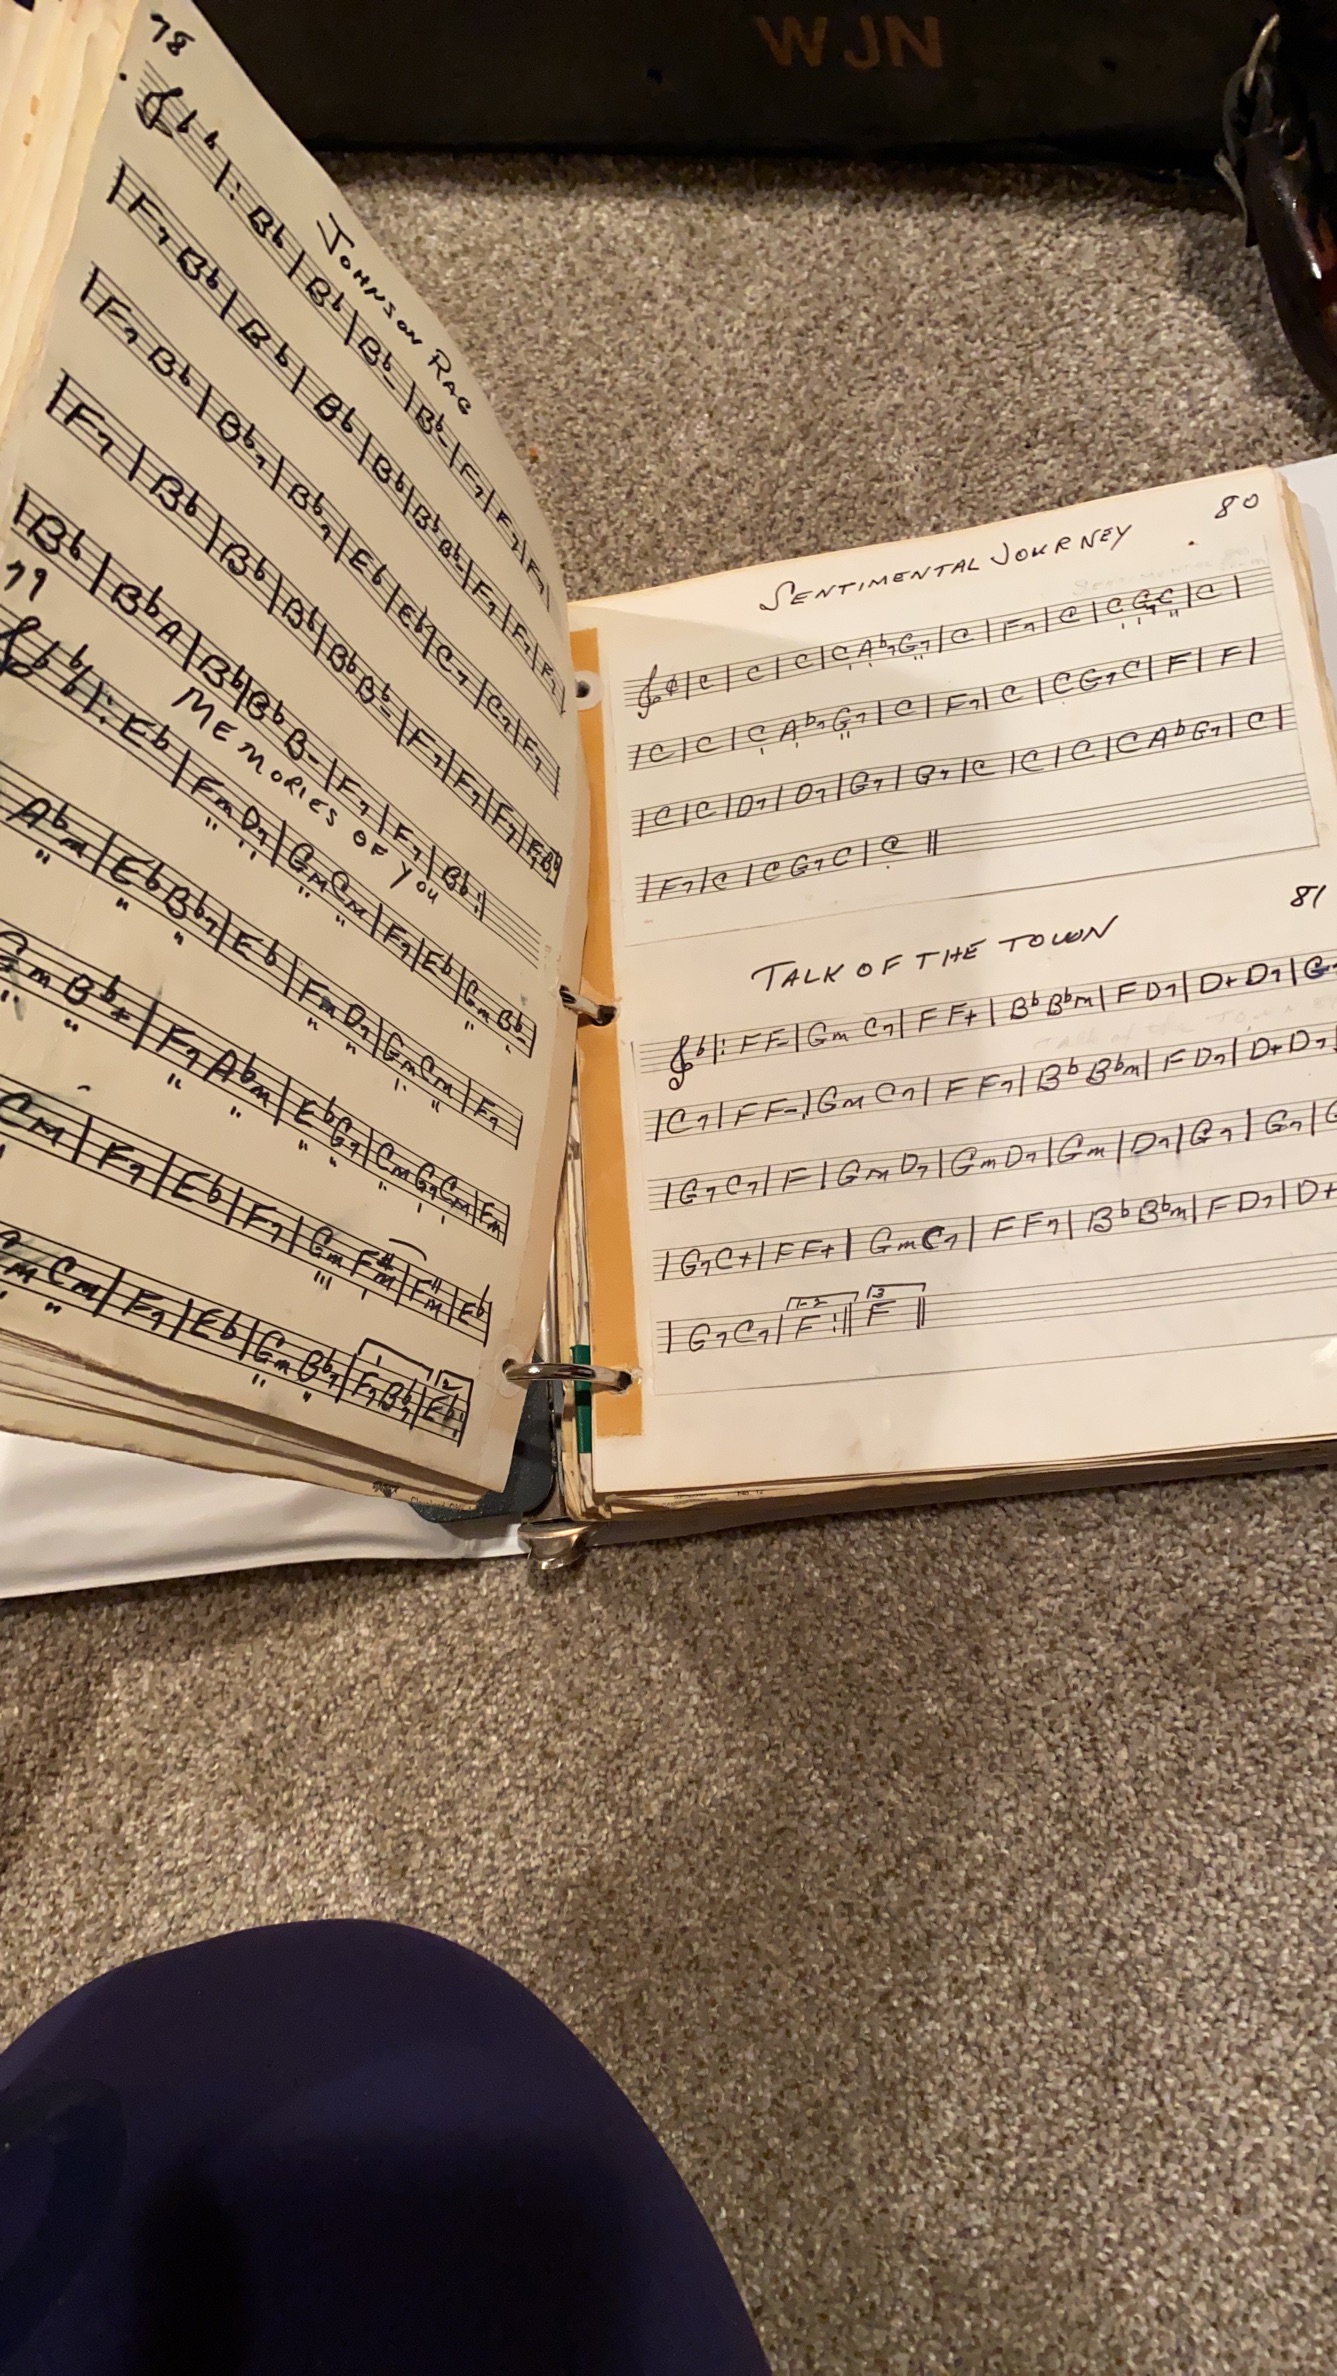 WJN
78
JOHNSON RAG
|: Bb | Bb | Bb- | Bb- | F7 | F7 | F7 |
| F7 Bb | Bb | Bb | Bb | Bb Bb- | F7 | F7 | F7 |
| F7 Bb | Bb7 | Bb7 | Eb | Eb | C7 | C7 | F7 |
| F7 | Bb | Bb | Bb | Bb Bb- | F7 | F7 | F7 Bb |
| Bb | Bb A | Bb | Bb B- | F7 | F7 | Bb :||
79
MEMORIES OF YOU
|: Eb | Fm D7 | Gm Cm | F7 | Eb | Gm Bb- |
Abm | Eb Bb7 | Eb | Fm D7 | Gm Cm | F7 |
Gm Bb+ | F7 Abm | Eb G7 | Cm G7 Cm | Fm |
Cm | F7 | Eb | F7 | Gm F#m | F#m | Eb |
Gm Cm | F7 | Eb | Gm Bb7 | 1 F7 Bb7 | 2 Eb |
80
SENTIMENTAL JOURNEY
¢ | C | C | C | C Ab7 G7 | C | F7 | C | C G7 C | C |
| C | C | C Ab7 G7 | C | F7 | C | C G7 C | F | F |
| C | C | D7 | D7 | G7 | G7 | C | C | C | C Ab G7 | C |
| F7 | C | C G7 C | C ||
81
TALK OF THE TOWN
b |: F F- | Gm C7 | F F+ | Bb Bbm | F D7 | D+ D7 | G7
| C7 | F F- | Gm C7 | F F7 | Bb Bbm | F D7 | D+ D7
| G7 C7 | F | Gm D7 | Gm D7 | Gm | D7 | G7 | G7 |
| G7 C+ | F F+ | Gm C7 | F F7 | Bb Bbm | F D7 | D+
| G7 C7 | 1-2 F :|| 3 F ||